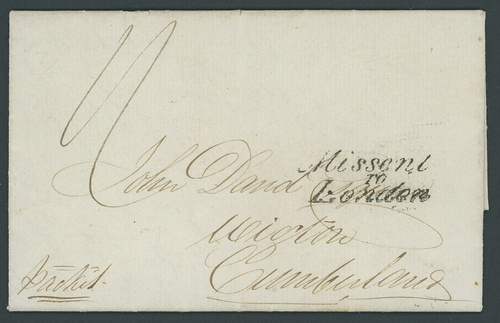 Missent
to
London
John Dand
Wigton
Cumberland
packet